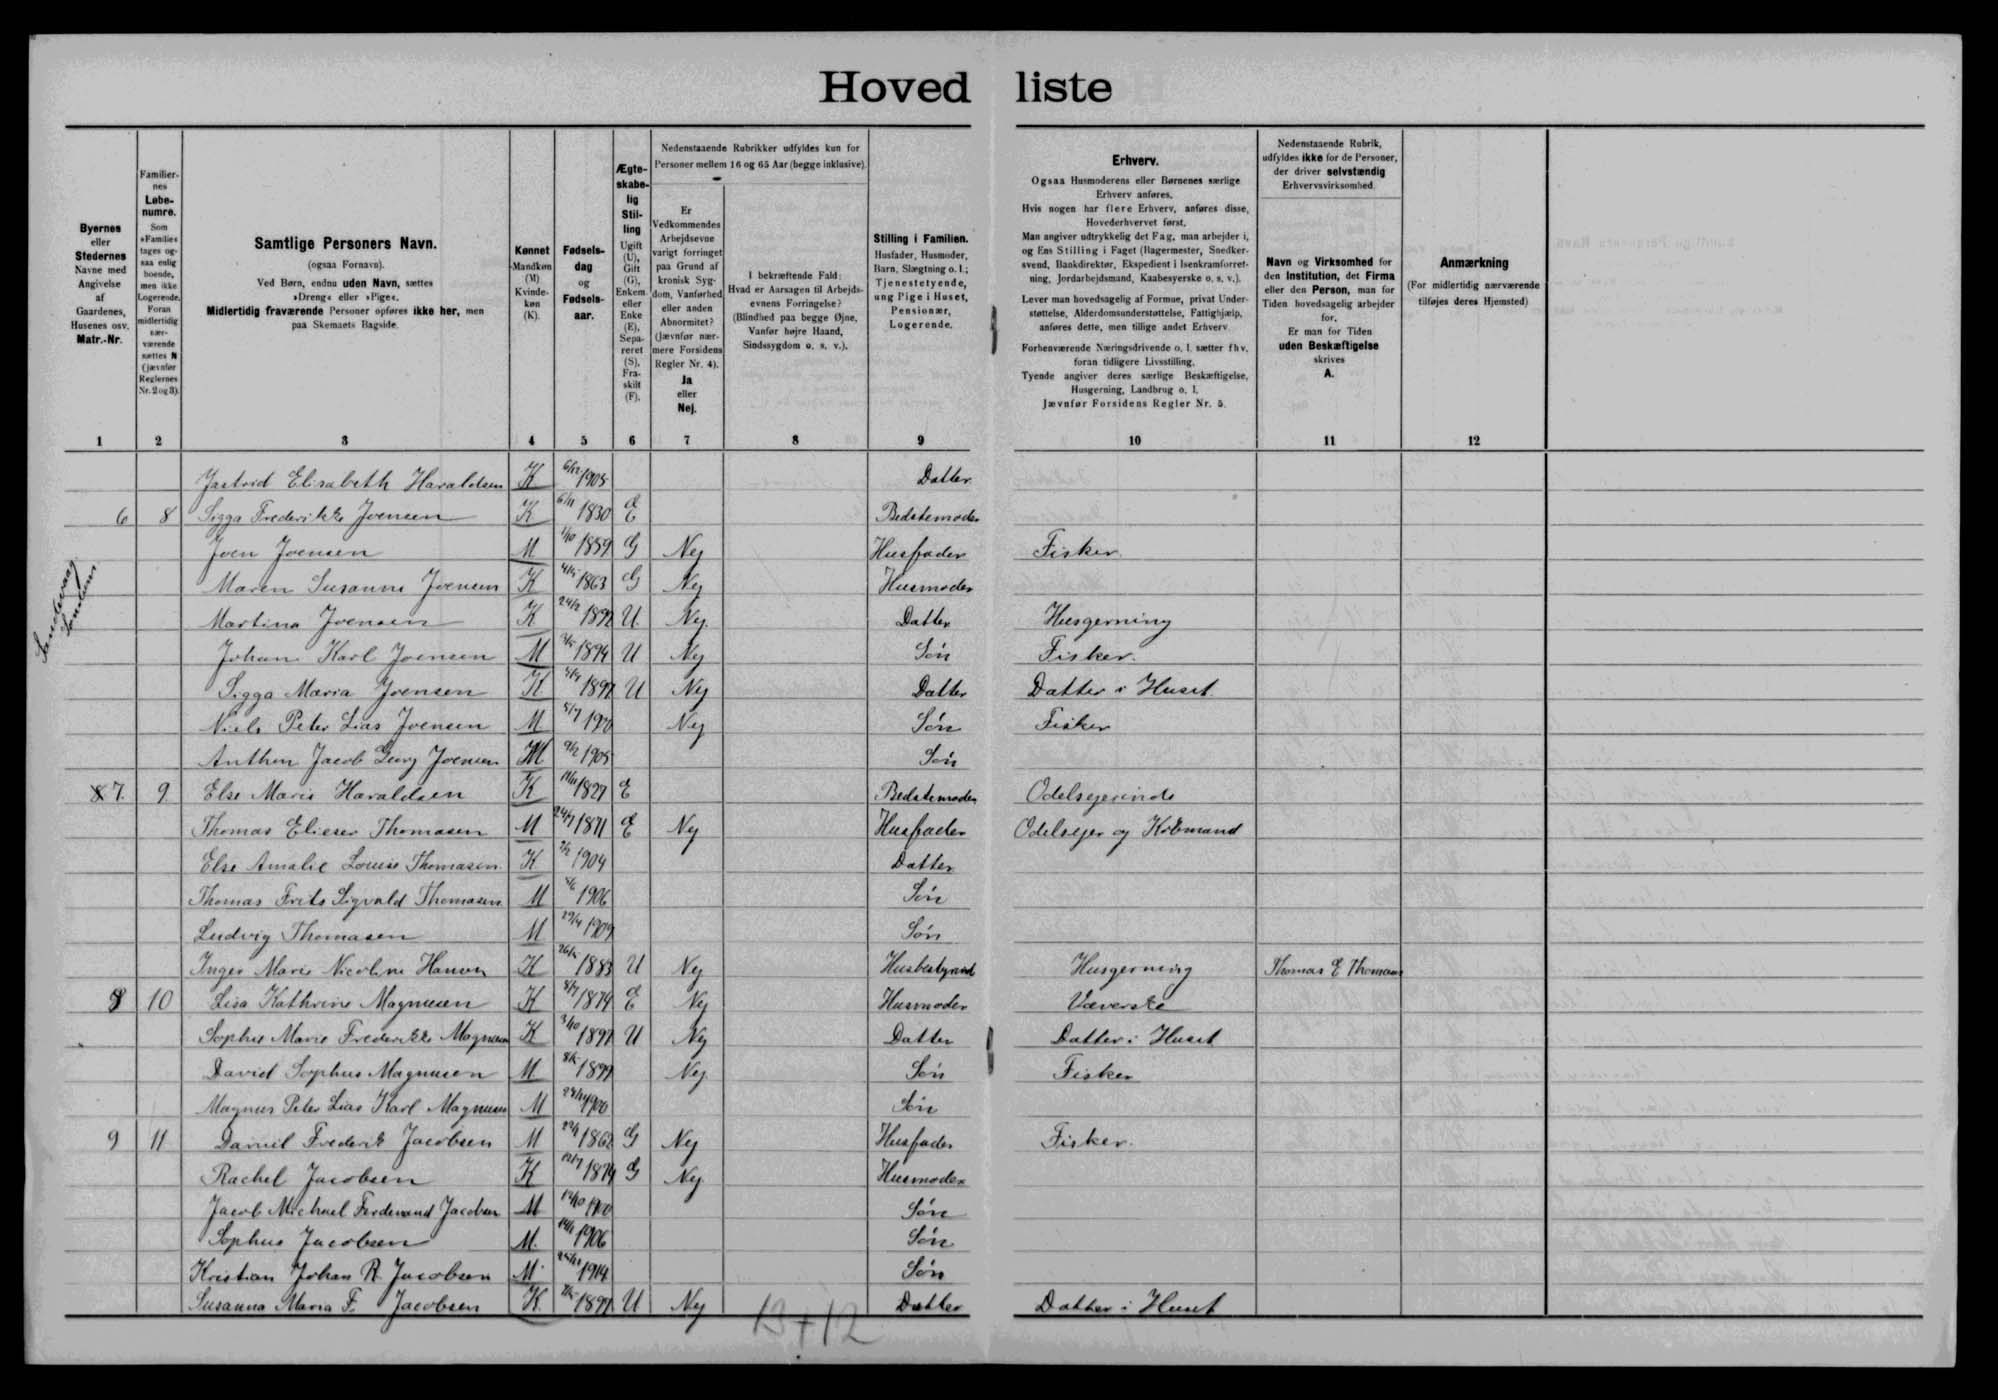 Hoved liste
Byernes
eller
Stedernes
Navne med
Angivelse
af
Gaardenes,
Husenes osv.
Matr.-Nr.
Familier-
nes
Løbe-
numre.
Som
»Familie«
tages og-
saa enlig
boende,
men ikke
Logerende.
Foran
midlertidig
nær-
værende
sættes N
(jævnfør
Reglernes
Nr. 2 og 3).
Samtlige Personers Navn.
(ogsaa Fornavn).
Ved Børn, endnu uden Navn, sættes
»Dreng« eller »Pige«.
Midlertidig fraværende Personer opføres ikke her, men
paa Skemaets Bagside.
Kønnet
Mandkøn
(M)
Kvinde-
køn
(K).
Fødsels-
dag
og
Fødsels-
aar.
Ægte-
skabe-
lig
Stil-
ling
Ugift
(U),
Gift
(G),
Enkem.
eller
Enke
(E),
Sepa-
reret
(S),
Fra-
skilt
(F).
Nedenstaaende Rubrikker udfyldes kun for
Personer mellem 16 og 65 Aar (begge inklusive).
Er
Vedkommendes
Arbejdsevne
varigt forringet
paa Grund af
kronisk Syg-
dom, Vanførhed
eller anden
Abnormitet?
(Jævnfør nær-
mere Forsidens
Regler Nr. 4).
Ja
eller
Nej.
I bekræftende Fald:
Hvad er Aarsagen til Arbejds-
evnens Forringelse?
(Blindhed paa begge Øjne,
Vanfør højre Haand,
Sindssygdom o. s. v.).
Stilling i Familien.
Husfader, Husmoder,
Barn, Slægtning o. l.;
Tjenestetyende,
ung Pige i Huset,
Pensionær,
Logerende.
Erhverv.
Ogsaa Husmoderens eller Børnenes særlige
Erhverv anføres.
Hvis nogen har flere Erhverv, anføres disse,
Hovederhvervet først.
Man angiver udtrykkelig det Fag, man arbejder i,
og Ens Stilling i Faget (Bagermester, Snedker-
svend, Bankdirektør, Ekspedient i Isenkramforret-
ning, Jordarbejdsmand, Kaabesyerske o. s. v.).
Lever man hovedsagelig af Formue, privat Under-
støttelse, Alderdomsunderstøttelse, Fattighjælp,
anføres dette, men tillige andet Erhverv.
Forhenværende Næringsdrivende o. l. sætter fhv.
foran tidligere Livsstilling.
Tyende angiver deres særlige Beskæftigelse,
Husgerning, Landbrug o. l.
Jævnfør Forsidens Regler Nr. 5.
Nedenstaaende Rubrik,
udfyldes ikke for de Personer,
der driver selvstændig
Erhvervsvirksomhed.
Navn og Virksomhed for
den Institution, det Firma
eller den Person, man for
Tiden hovedsagelig arbejder
for.
Er man for Tiden
uden Beskæftigelse
skrives
A.
Anmærkning
(For midlertidig nærværende
tilføjes deres Hjemsted)
1 2 3 4 5 6 7 8 9 10 11 12
Elisabeth Haraldsen K 6/12 1905 Datter
6 8 Sigga Frederikke Joensen K 6/11 1830 E Bedstemoder
Joen Joensen M 1/10 1859 G Nej Husfader Fisker.
Maren Susanne Joensen K 1863 G Nej Husmoder
Martina Joensen K 24/2 1892 U Nej Datter Husgerning
Johan Karl Joensen M 1894 U Nej Søn Fisker.
Sigga Maria Joensen K 1897 U Nej Datter Datter i Huset
Niels Peter Lias Joensen M 5/7 1900 Nej Søn Fisker
Jacob Joensen M 9/2 1905 Søn
7. 9 Else Marie Haraldsen K 1827 E Bedstemoder Odelsejerinde
Thomas Elieser Thomasen M 24/7 1871 E Nej Husfader Odelsejer og Købmand
Else Amalie Louise Thomasen K 1904 Datter
Thomas Frits Sigvald Thomasen M 1906 Søn
Ludvig Thomasen M 1909 Søn
Inger Marie Nicoline Hansen K 1883 U Nej Husbestyrind Husgerning Thomas E Thomasen
8 10 Lisa Kathrine Magnusen K 8/7 1874 E Nej Husmoder Væverske
Sophie Marie Frederikke Magnusen K 3/10 1897 U Nej Datter Datter i Huset
David Sophus Magnusen M 1899 Nej Søn Fisker
Magnus Peter Lias Karl Magnusen M 1900 Søn
9 11 Daniel Frederik Jacobsen M 1862 G Nej Husfader Fisker.
Rachel Jacobsen K 1874 G Nej Husmoder
Jacob Michael Ferdenand Jacobsen M 1900 Søn
Sophus Jacobsen M. 1906 Søn
Kristian Johan R. Jacobsen M 1914 Søn
Susanna Maria F. Jacobsen K. 1897 U Nej Datter Datter i Huset
13+12